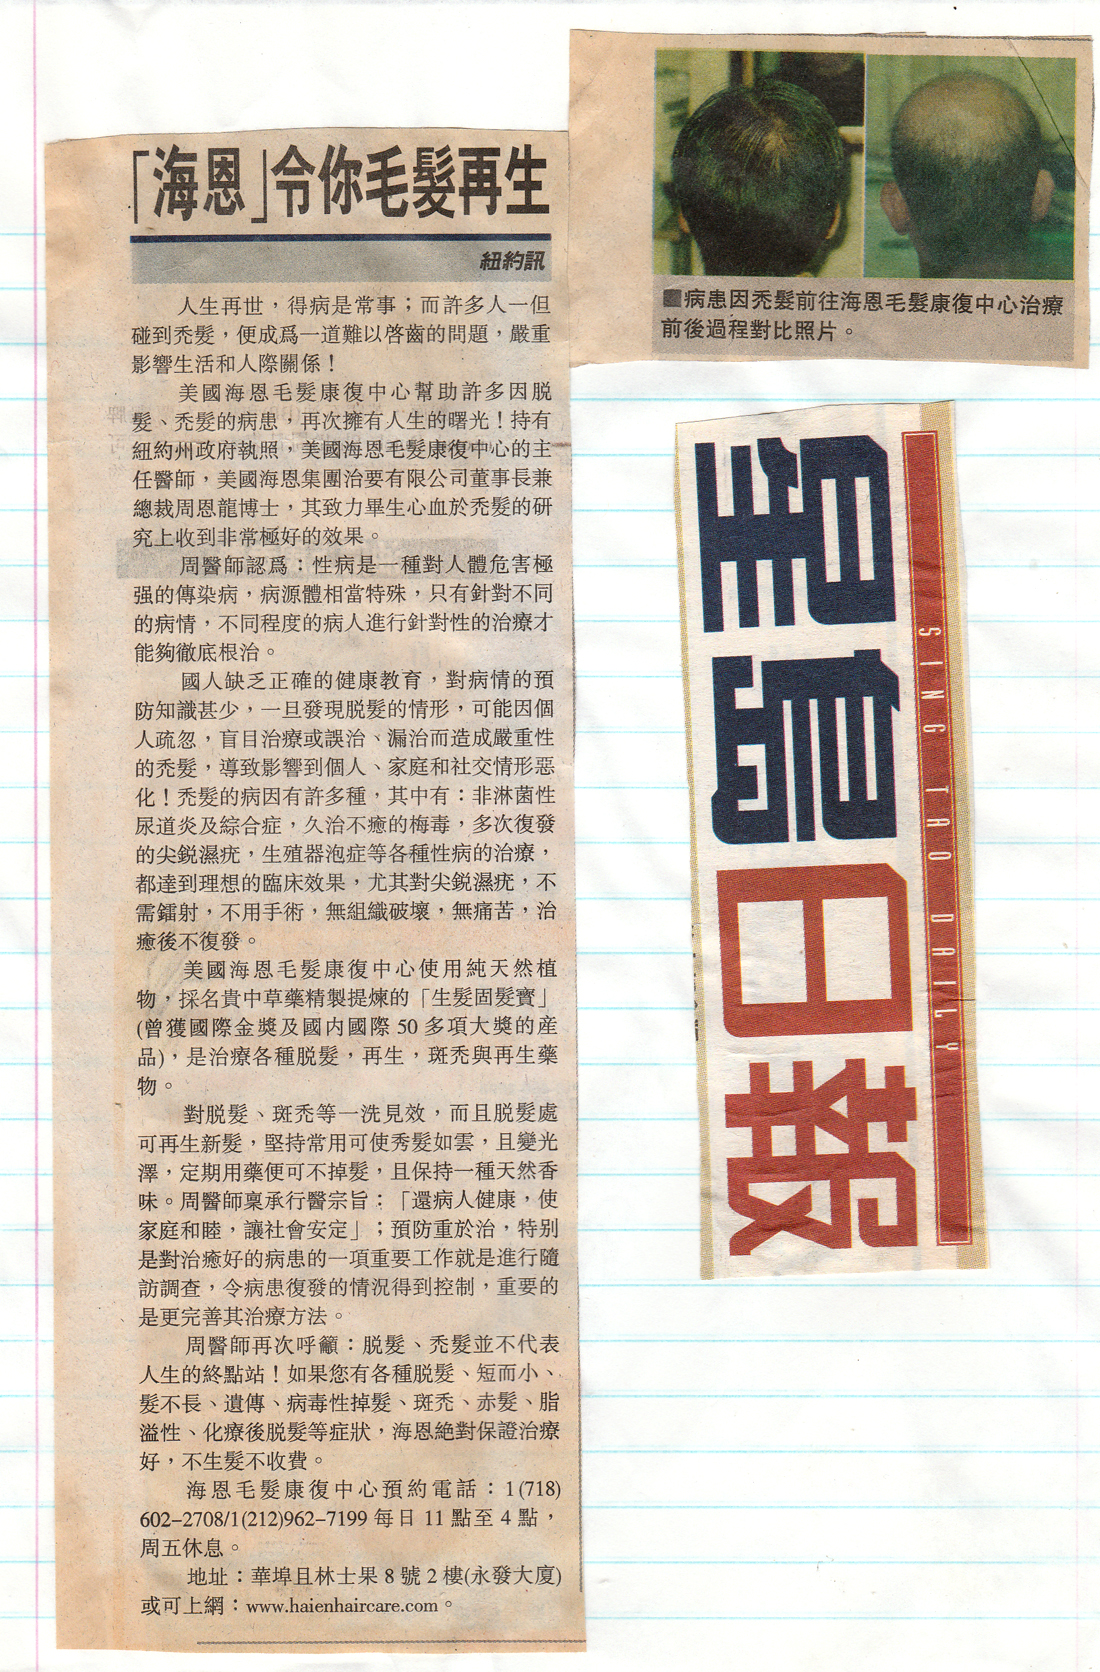 「海恩」令你毛髮再生
紐約訊
人生再世，得病是常事；而許多人一但
碰到禿髮，便成爲一道難以啓齒的問題，嚴重
影響生活和人際關係！
美國海恩毛髮康復中心幫助許多因脫
髮、禿髮的病患，再次擁有人生的曙光！持有
紐約州政府執照，美國海恩毛髮康復中心的主
任醫師，美國海恩集團治要有限公司董事長兼
總裁周恩龍博士，其致力畢生心血於禿髮的研
究上收到非常極好的效果。
周醫師認爲：性病是一種對人體危害極
强的傳染病，病源體相當特殊，只有針對不同
的病情，不同程度的病人進行針對性的治療才
能夠徹底根治。
國人缺乏正確的健康教育，對病情的預
防知識甚少，一旦發現脫髮的情形，可能因個
人疏忽，盲目治療或誤治、漏治而造成嚴重性
的禿髮，導致影響到個人、家庭和社交情形惡
化！禿髮的病因有許多種，其中有：非淋菌性
尿道炎及綜合症，久治不癒的梅毒，多次復發
的尖銳濕疣，生殖器泡症等各種性病的治療，
都達到理想的臨床效果，尤其對尖銳濕疣，不
需鐳射，不用手術，無組織破壞，無痛苦，治
癒後不復發。
美國海恩毛髮康復中心使用純天然植
物，採名貴中草藥精製提煉的「生髮固髮寶」
(曾獲國際金獎及國内國際 50 多項大獎的産
品)，是治療各種脫髮，再生，斑禿與再生藥
物。
對脫髮、斑禿等一洗見效，而且脫髮處
可再生新髮，堅持常用可使秀髮如雲，且變光
澤，定期用藥便可不掉髮，且保持一種天然香
味。周醫師稟承行醫宗旨：「還病人健康，使
家庭和睦，讓社會安定」；預防重於治，特別
是對治癒好的病患的一項重要工作就是進行隨
訪調查，令病患復發的情況得到控制，重要的
是更完善其治療方法。
周醫師再次呼籲：脫髮、禿髮並不代表
人生的終點站！如果您有各種脫髮、短而小、
髮不長、遺傳、病毒性掉髮、斑禿、赤髮、脂
溢性、化療後脫髮等症狀，海恩絕對保證治療
好，不生髮不收費。
海恩毛髮康復中心預約電話：1(718)
602-2708/1(212)962-7199 每日 11 點至 4 點，
周五休息。
地址：華埠且林士果 8 號 2 樓(永發大廈)
或可上網：www.haienhaircare.com。
■病患因禿髮前往海恩毛髮康復中心治療
前後過程對比照片。
星島日報
SING TAO DAILY